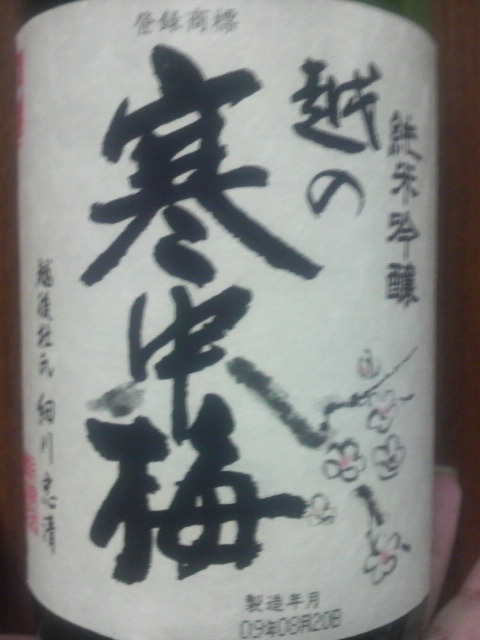 登録商標
純米吟醸
越の
寒中梅
越後杜氏 細川忠清
製造年月
09年08月20日